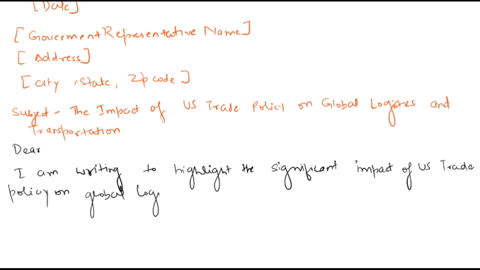 [Date]
[Goverment Representative Name]
[Address]
[City, State, Zip code]
Subject - The Impact of US Trade Policy on Global Logistics and
Transportation
Dear
I am writing to highlight the significant impact of US Trade
policy on global Log